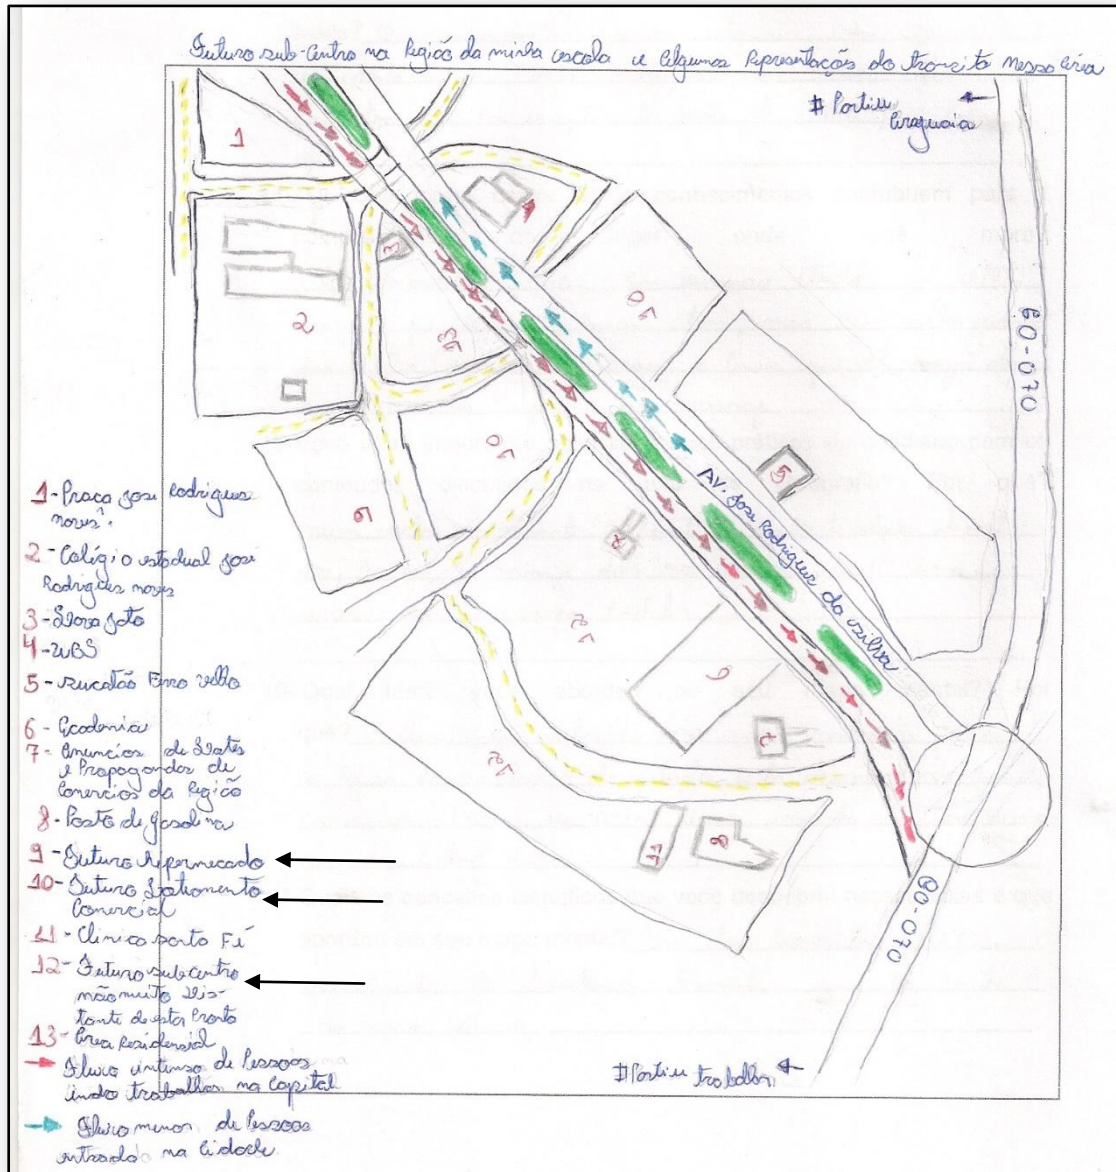 Futuro sub-centro na Região da minha escola e Algumas Representações do transito nessa área
# Partiu Araguaia
GO-070
1
2
3
13
10
10
5
6
7
12
9
7
12
11
8
Av. Jose Rodrigues da Cunha
GO-070
# Partiu trabalhar
1- Praça jose Rodrigues
2- Colégio estadual jose
Rodrigues
3- Lava jato
4- UBS
5- sucatão Ferro velho
6- Academia
7- Anuncios de Lotes
e Propagandas de
Comercios da Região
8- Posto de gasolina
9- Futuro hipermecado
10- Futuro Loteamento
Comercial
11- Clinica santa Fé
12- Futuro subcentro
não muito dis-
tante de estar Pronto
13- Área Residencial
Fluxo intenso de Pessoas
indo trabalhar na Capital
Fluxo menor de Pessoas
entrado na Cidade